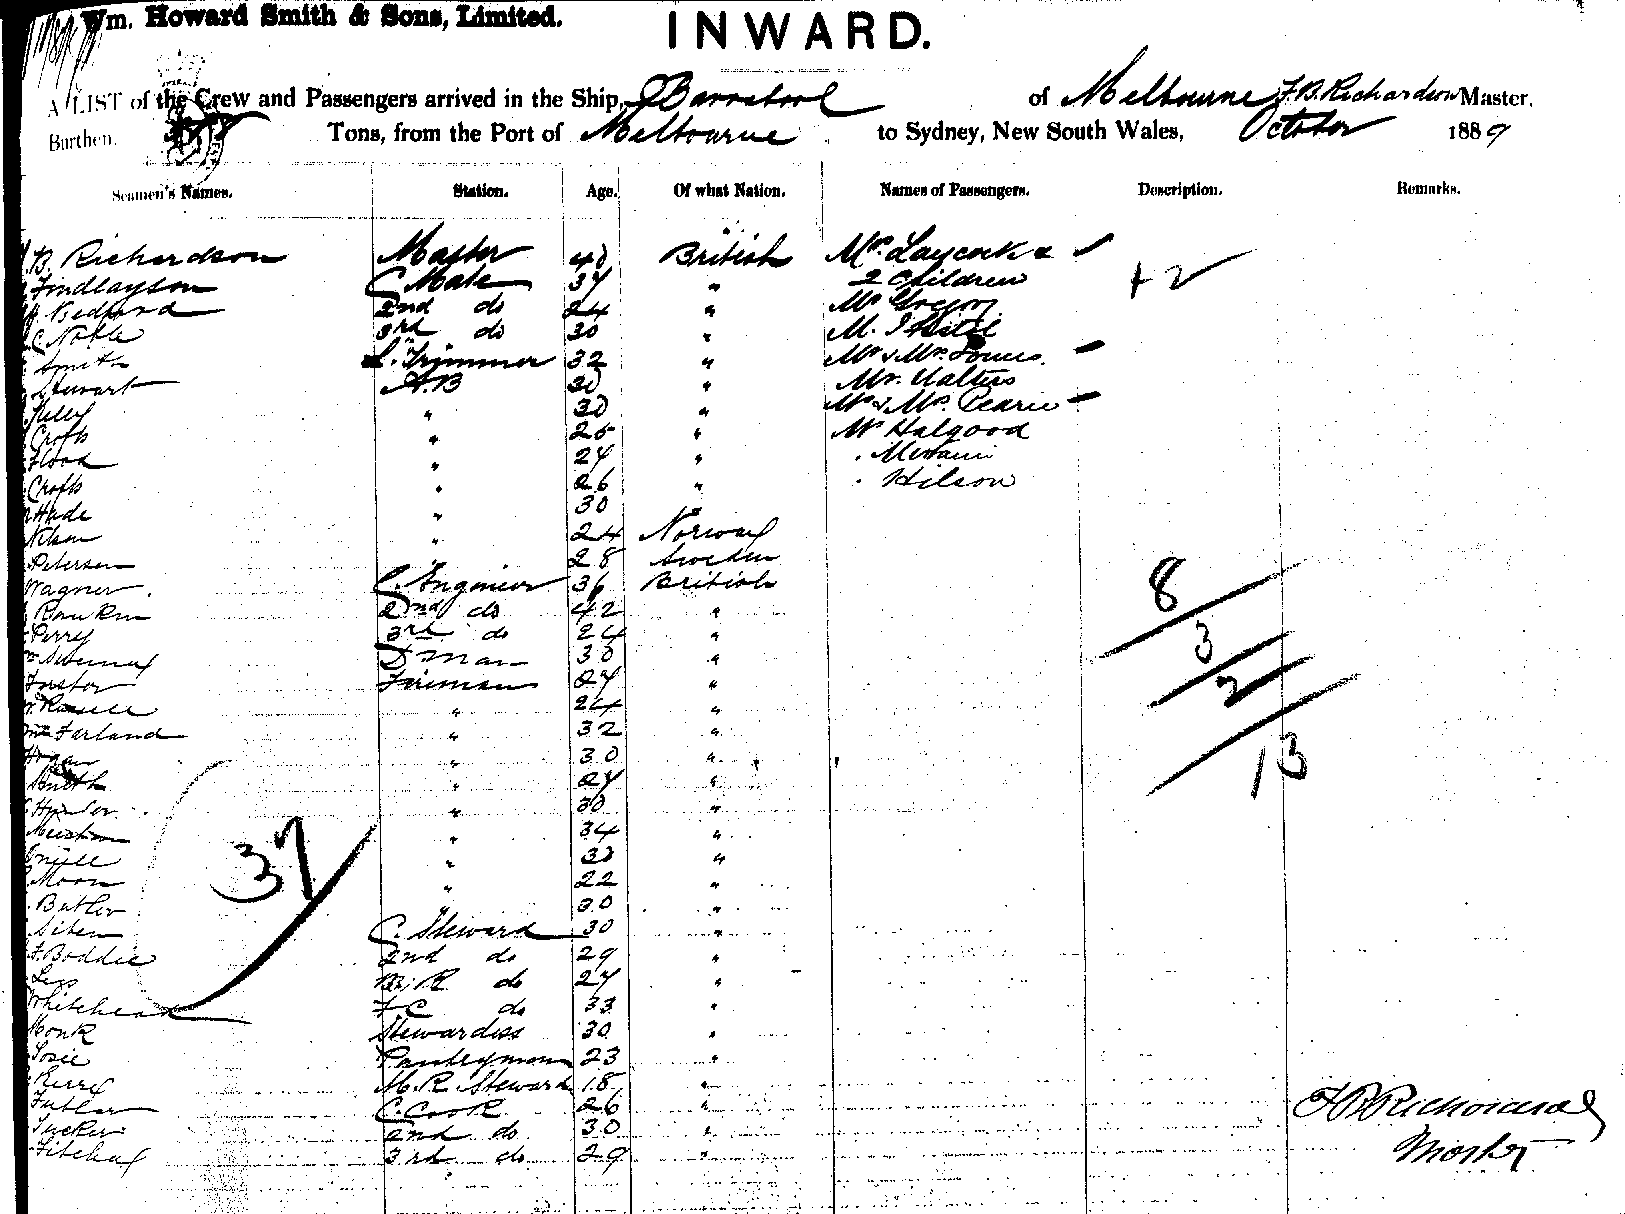 Wm. Howard Smith & Sons, Limited.
INWARD.
A LIST of the Crew and Passengers arrived in the Ship, of Melbourne F.B. Richardson Master,
Burthen. Tons, from the Port of Melbourne to Sydney, New South Wales, October 1889
Seamen's Names. Station. Age. Of what Nation. Names of Passengers. Description. Remarks.
B Richardson Master 40 British Mrs. Laycock &
Findlayson C Mate 34 " 2 Children +2
Bedford 2nd do 24 " Mr Gregory
C Noble 3rd do 30 " M.
Smith L. Trimmer 32 " Mr & Mrs
Stewart A.B 30 " Mr. Walters
30 " Mr & Mrs. Pearce
Crofts " 25 " Mr Halgood
Flood " 24 "
Crofts " 26 " . Hilson
Hude " 30 "
Nelson " 24 Norway
Petersen " 28 Sweden
Wagner. C. Engineer 36 British 8
2nd do 42 "
Perry 3rd do 24 " 3
D man 30 "
Forster Fireman 27 " 2
" 24 "
Mc Farland " 32 "
Hogan " 30 " 13
Smith " 27 "
Hunter " 30 "
" 34 "
" "
Moon " 22 "
Butler " 30 "
37
C. Steward 30 "
F. Boddie 2nd do 29 "
do 27 "
Whitehead F C do 33 "
Monk Stewardess 30 "
Pantryman 23 "
Berry M.R. Steward 18 "
C. Cook 26 "
Tucker 2nd do 30 "
3rd do 29 "
F B Richardson
Master